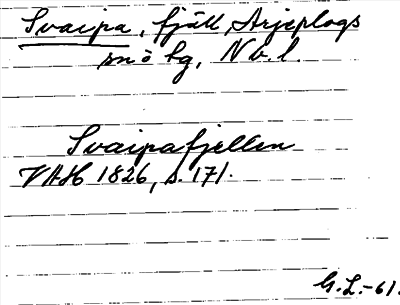 Svaipa, fjäll, Arjeplogs
snö kg, Nv. l.
Svaipafjellen
VAH 1826, s. 171.
G.L.-61.